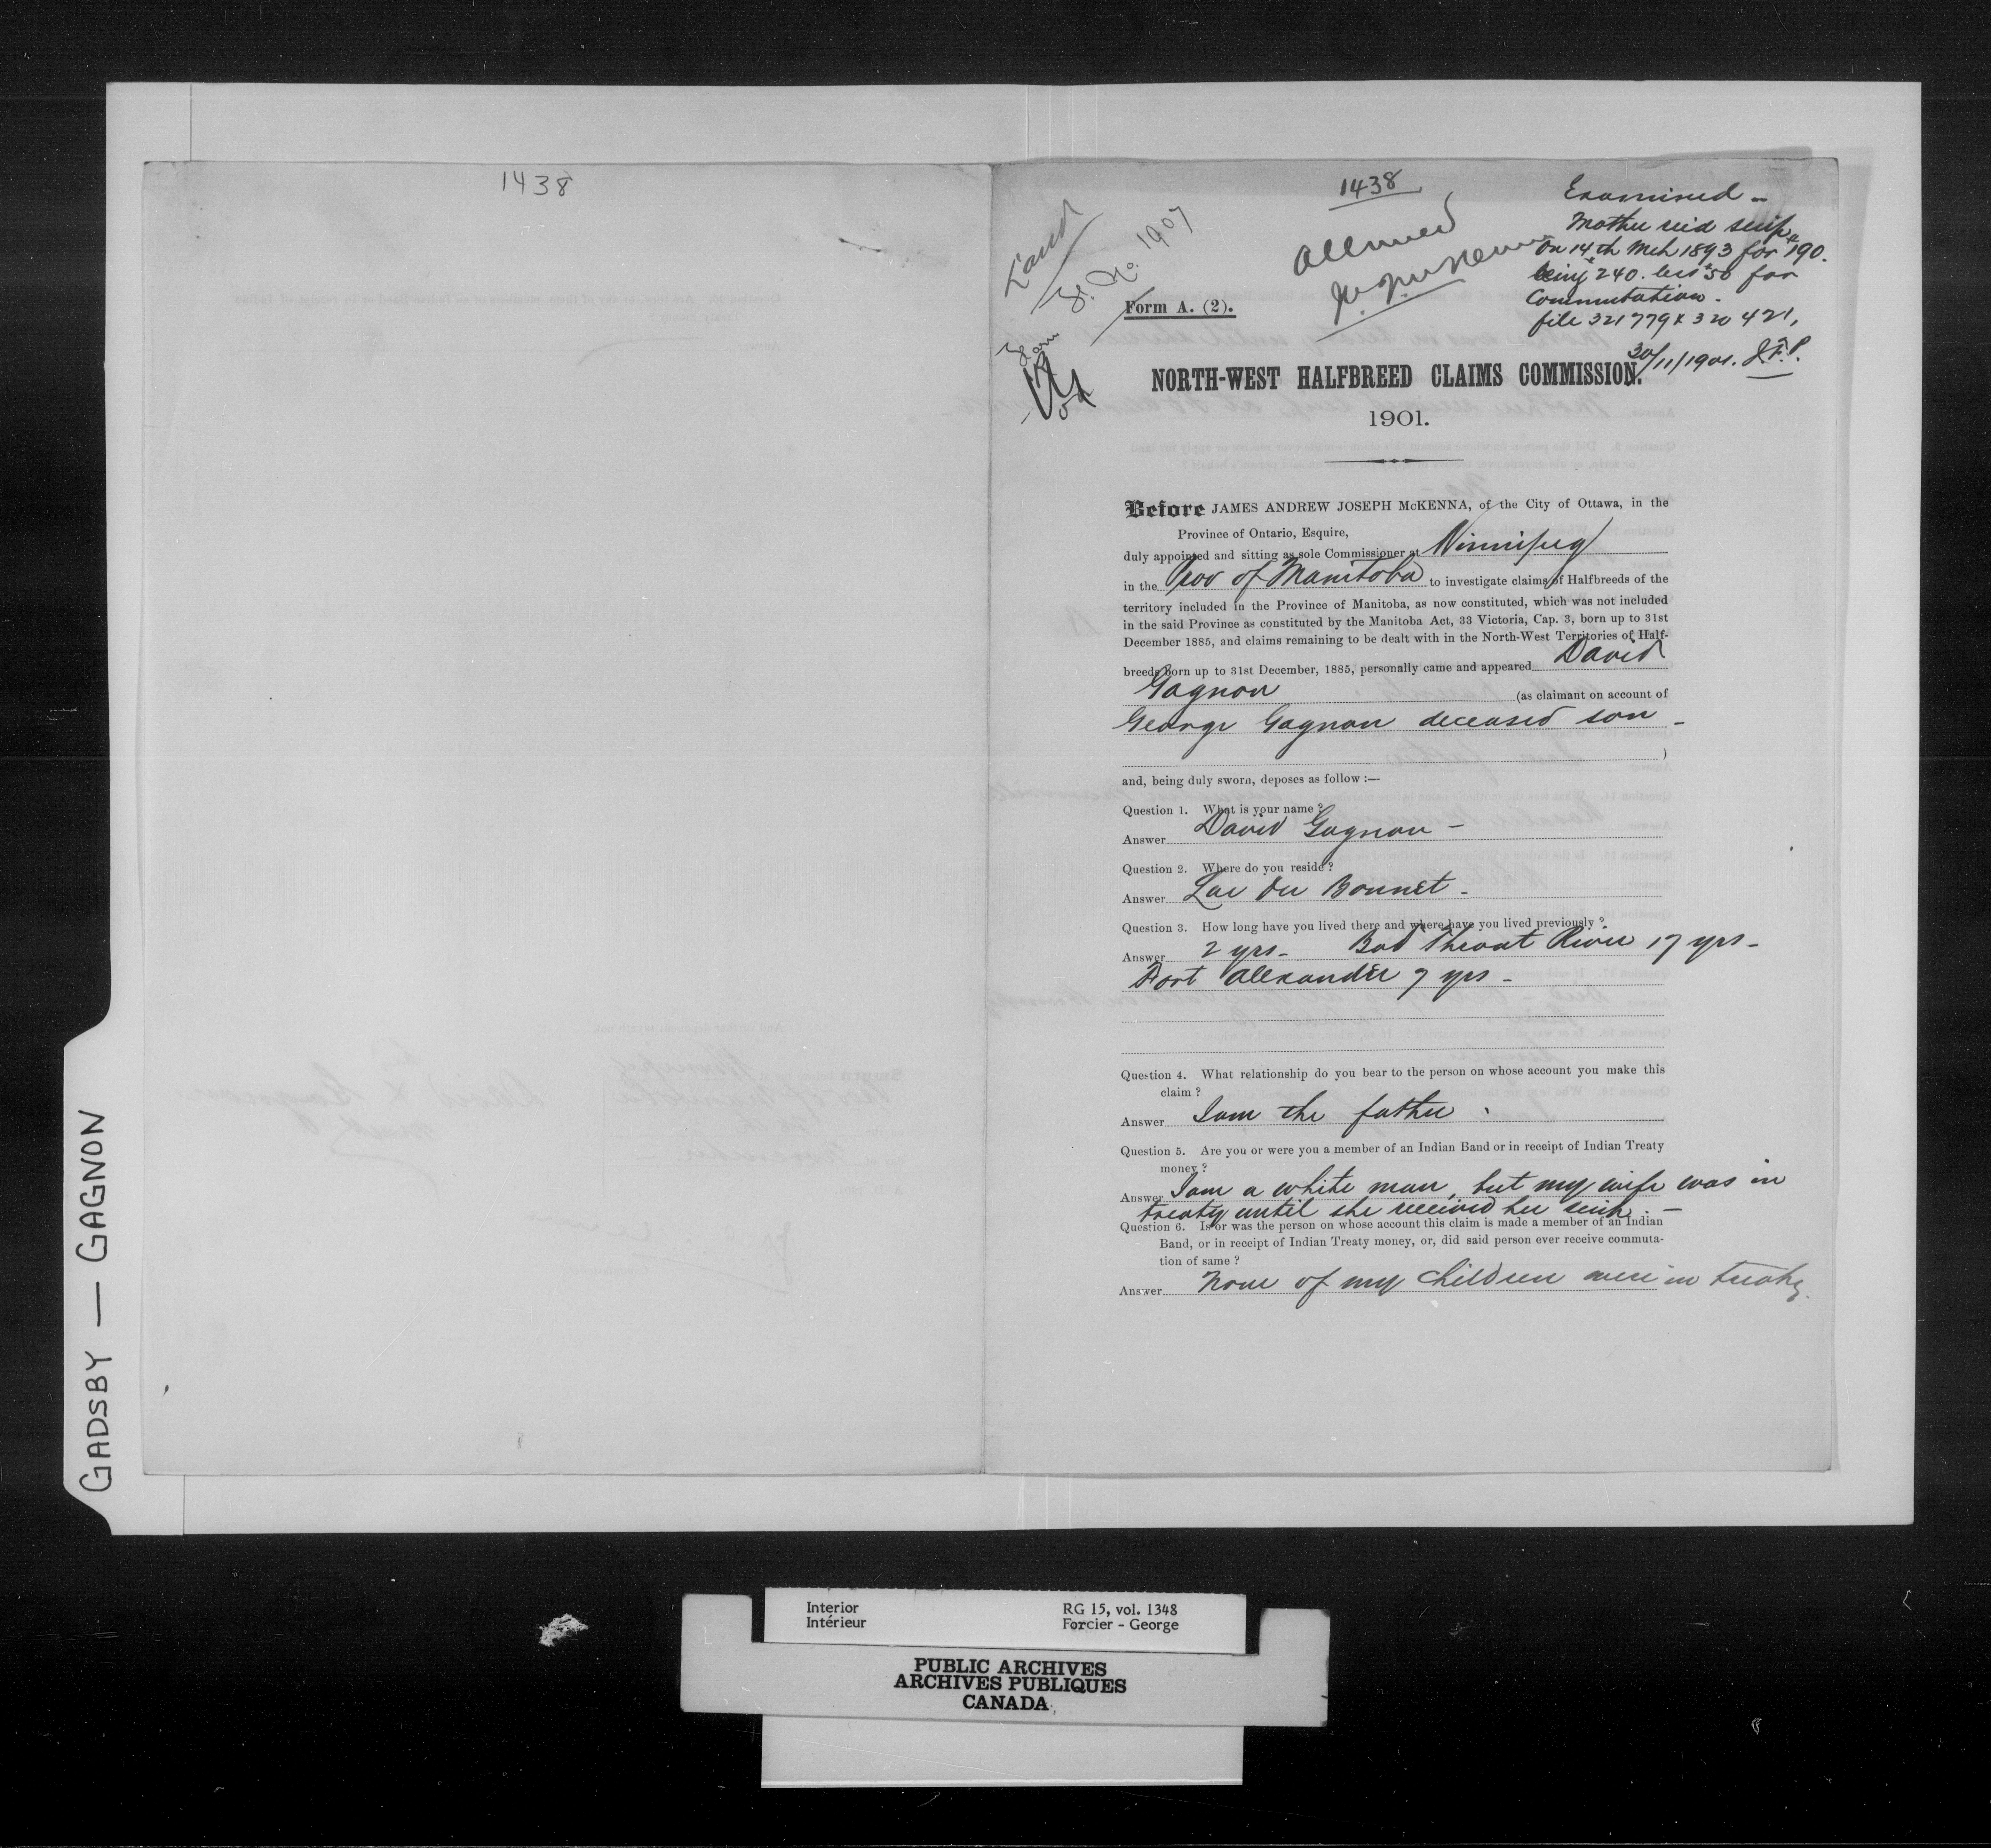 1438
1438
Land
Allowed
Examined –
Mother rec'd scrip
on 14th Mch 1893 for $190.
being $240. less $50 for
Commutation.
file 321779 & 320421,
30/11/1901. J.F.P.
Form A. (2).
NORTH-WEST HALFBREED CLAIMS COMMISSION.
1901.
Before JAMES ANDREW JOSEPH McKENNA, of the City of Ottawa, in the
Province of Ontario, Esquire,
duly appointed and sitting as sole Commissioner at Winnipeg
in the Prov of Manitoba to investigate claims of Halfbreeds of the
territory included in the Province of Manitoba, as now constituted, which was not included
in the said Province as constituted by the Manitoba Act, 33 Victoria, Cap. 3, born up to 31st
December 1885, and claims remaining to be dealt with in the North-West Territories of Half-
breeds born up to 31st December, 1885, personally came and appeared David
Gagnon (as claimant on account of
George Gagnon deceased son –
)
and, being duly sworn, deposes as follow :—
Question 1. What is your name?
Answer David Gagnon –
Question 2. Where do you reside?
Answer Lac du Bonnet –
Question 3. How long have you lived there and where have you lived previously?
Answer 2 yrs – Bad Throat River 17 yrs –
Fort Alexander 7 yrs –
Question 4. What relationship do you bear to the person on whose account you make this
claim?
Answer I am the father.
Question 5. Are you or were you a member of an Indian Band or in receipt of Indian Treaty
money?
Answer I am a white man, but my wife was in
treaty until she received her scrip. –
Question 6. Is or was the person on whose account this claim is made a member of an Indian
Band, or in receipt of Indian Treaty money, or, did said person ever receive commuta-
tion of same?
Answer None of my children were in treaty.
GADSBY — GAGNON
Interior RG 15, vol. 1348
Intérieur Forcier - George
PUBLIC ARCHIVES
ARCHIVES PUBLIQUES
CANADA